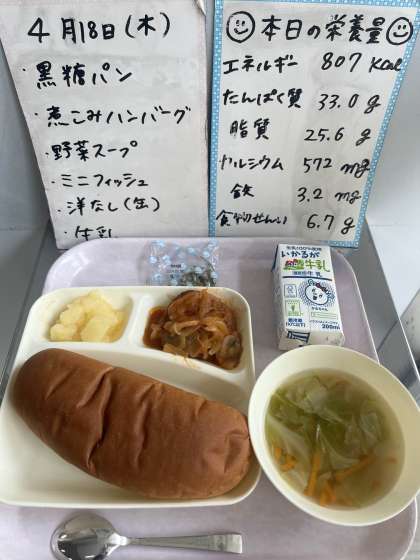 4月18日(木)
・黒糖パン
・煮こみハンバーグ
・野菜スープ
・ミニフィッシュ
・洋なし(缶)
・牛乳
本日の栄養量
エネルギー 807 kcal
たんぱく質 33.0 g
脂質 25.6 g
カルシウム 572 mg
鉄 3.2 mg
食物せんい 6.7 g
いかるが
牛乳
200ml